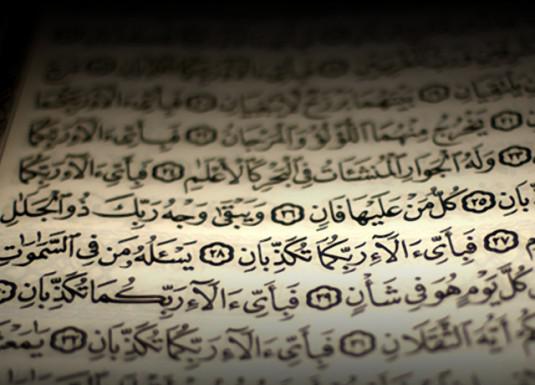 يَلْتَقِيَانِ ﴿١٩﴾ بَيْنَهُمَا بَرْزَخٌ لَّا يَبْغِيَانِ ﴿٢٠﴾ فَبِأَىِّ ءَالَآءِ رَبِّكُمَا
﴿٢١﴾ يَخْرُجُ مِنْهُمَا اللُّؤْلُؤُ وَالْمَرْجَانُ ﴿٢٢﴾ فَبِأَىِّ ءَالَآءِ رَبِّكُمَا
﴿٢٣﴾ وَلَهُ الْجَوَارِ الْمُنشَئَاتُ فِي الْبَحْرِ كَالْأَعْلَٰمِ ﴿٢٤﴾ فَبِأَىِّ ءَالَآءِ رَبِّكُمَا
ذِّبَانِ ﴿٢٥﴾ كُلُّ مَنْ عَلَيْهَا فَانٍ ﴿٢٦﴾ وَيَبْقَىٰ وَجْهُ رَبِّكَ ذُو الْجَلَٰلِ
﴿٢٧﴾ فَبِأَىِّ ءَالَآءِ رَبِّكُمَا تُكَذِّبَانِ ﴿٢٨﴾ يَسْـَٔلُهُۥ مَن فِي السَّمَٰوَٰتِ
كُلَّ يَوْمٍ هُوَ فِي شَأْنٍ ﴿٢٩﴾ فَبِأَىِّ ءَالَآءِ رَبِّكُمَا تُكَذِّبَانِ
أَيُّهَ الثَّقَلَانِ ﴿٣١﴾ فَبِأَىِّ ءَالَآءِ رَبِّكُمَا تُكَذِّبَانِ ﴿٣٢﴾ يَٰمَعْشَ